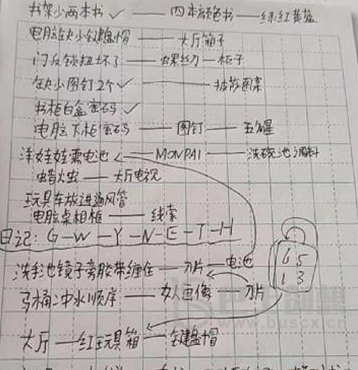 书架少两本书 ✓ — 四本颜色书 — 绿红黄蓝
电脑缺少键盘帽 — 大厅箱子
门反锁扭坏了 — 螺丝刀 — 柜子
缺少图钉2个 ✓ — 披萨图案
书柜白盒密码 ✓
电脑下柜密码 — 图钉 — 五角星
洋娃娃需电池 — MONPAI — 洗碗池调料
蜡火虫 — 大厅电视
玩具车放进通风管
电脑桌相框 — 线索
日记: G-W-Y-N-E-T-H
洗手池镜子旁胶带缠住 — 刀片 — 电池
6 5
1 3
马桶:冲水顺序 — 女人画像 — 刀片
大厅 — 红玩具箱 — 键盘帽